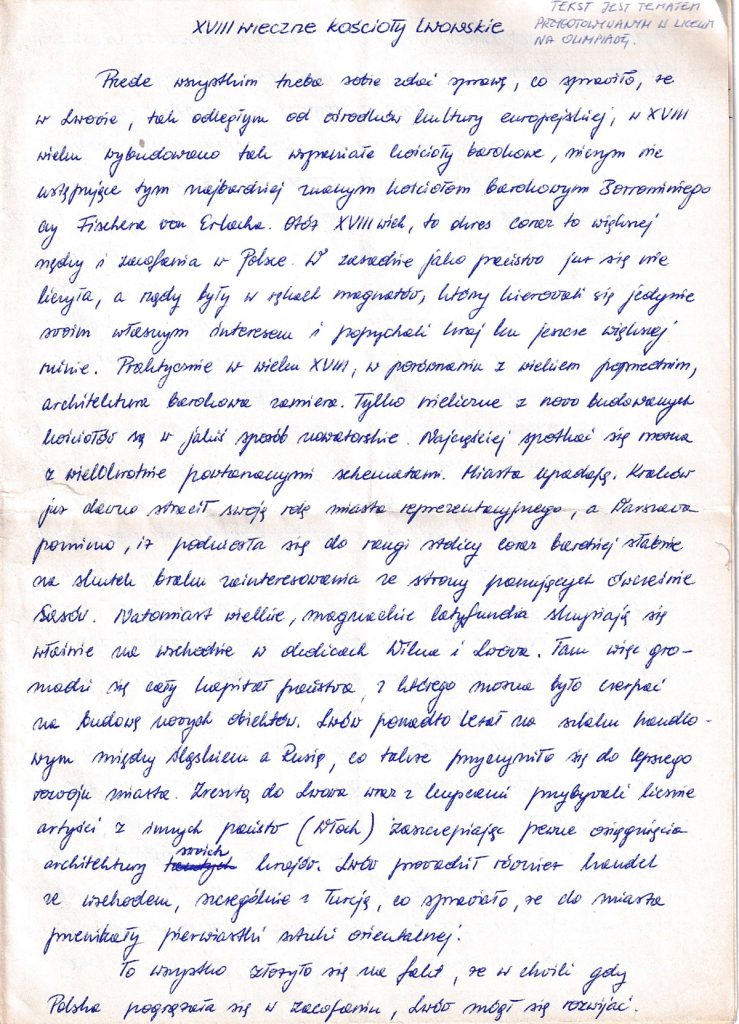 XVIII wieczne kościoły lwowskie
TEKST JEST TEMATEM
PRZYGOTOWYWANYM W LICEUM
NA OLIMPIADĘ.
Przede wszystkim trzeba sobie zdać sprawę, co sprawiło, że
w Lwowie, tak odległym od ośrodków kultury europejskiej, w XVIII
wieku wybudowano tak wspaniałe kościoły barokowe, niczym nie
ustępujące tym najbardziej znanym kościołom barokowym Borrominiego
czy Fischera von Erlacha. Otóż XVIII wiek, to okres coraz to większej
nędzy i zacofania w Polsce. W zasadzie jako państwo już się nie
liczyła, a rządy były w rękach magnatów, którzy kierowali się jedynie
swoim własnym interesem i popychali kraj ku jeszcze większej
ruinie. Praktycznie w wieku XVIII, w porównaniu z wiekiem poprzednim,
architektura barokowa zamiera. Tylko nieliczne z nowo budowanych
kościołów są w jakiś sposób nowatorskie. Najczęściej spotkać się można
z wielokrotnie powtarzanymi schematami. Miasta upadają. Kraków
już dawno stracił swoją rolę miasta reprezentacyjnego, a Warszawa
pomimo, iż podniosła się do rangi stolicy coraz bardziej słabnie
na skutek braku zainteresowania ze strony panujących ówcześnie
Sasów. Natomiast wielkie, magnackie latyfundia skupiają się
właśnie na wschodzie w okolicach Wilna i Lwowa. Tam więc gro-
madzi się cały kapitał państwa, z którego można było czerpać
na budowę nowych obiektów. Lwów ponadto leżał na szlaku handlo-
wym między Śląskiem a Rusią, co także przyczyniło się do lepszego
rozwoju miasta. Zresztą do Lwowa wraz z kupcami przybywali licznie
artyści z innych państw (Włoch) zaszczepiając pewne osiągnięcia
architektury swoich krajów. Lwów prowadził również handel
ze wschodem, szczególnie z Turcją, co sprawiało, że do miasta
przenikały pierwiastki sztuki orientalnej.
To wszystko złożyło się na fakt, że w chwili gdy
Polska pogrążała się w zacofaniu, Lwów mógł się rozwijać.